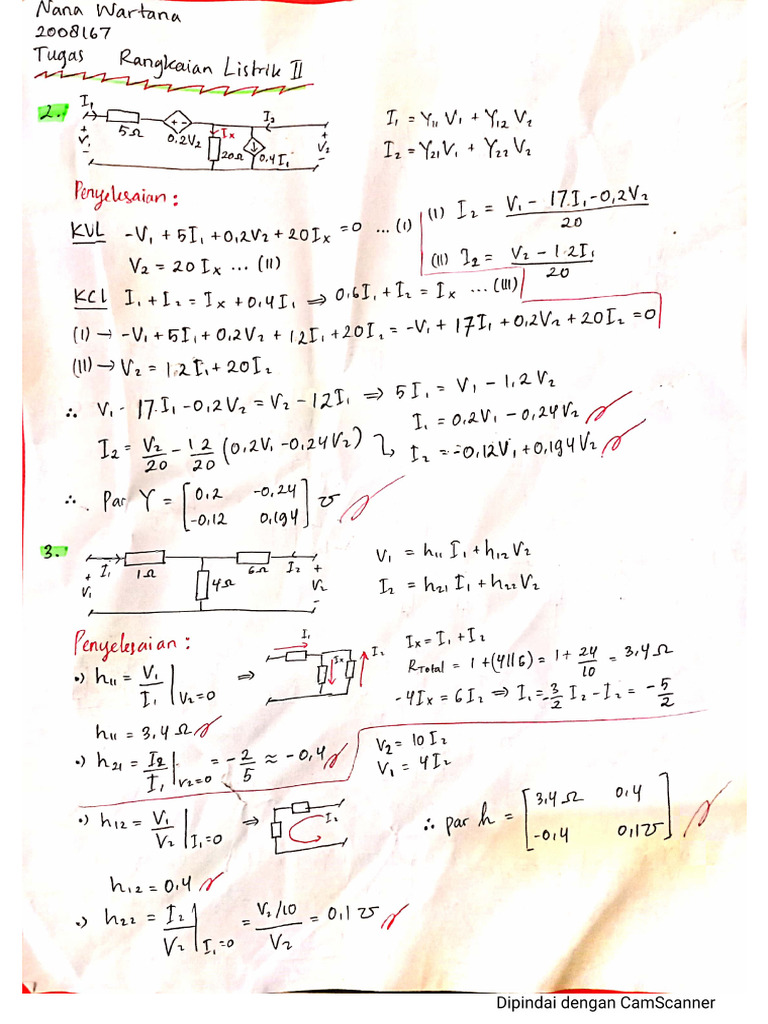 Nana Wartana
2008167
Tugas Rangkaian Listrik II
2.
I₁
+ V₁ -
5Ω
+ -
0,2V₂
Ix
20Ω
0,4I₁
I₂
+ V₂ -
I₁ = Y₁₁V₁ + Y₁₂V₂
I₂ = Y₂₁V₁ + Y₂₂V₂
Penyelesaian :
KVL -V₁ + 5I₁ + 0,2V₂ + 20Ix = 0 ... (I)
V₂ = 20Ix ... (II)
(I) I₂ = V₁ - 17.I₁ - 0,2V₂ / 20
(II) I₂ = V₂ - 1.2I₁ / 20
KCL I₁ + I₂ = Ix + 0,4I₁ ⇒ 0,6I₁ + I₂ = Ix ... (III)
(I) → -V₁ + 5I₁ + 0,2V₂ + 12I₁ + 20I₂ = -V₁ + 17I₁ + 0,2V₂ + 20I₂ = 0
(II) → V₂ = 1.2I₁ + 20I₂
∴ V₁ - 17.I₁ - 0,2V₂ = V₂ - 12I₁ ⇒ 5I₁ = V₁ - 1,2V₂
I₁ = 0,2V₁ - 0,24V₂
I₂ = V₂/20 - 12/20 (0,2V₁ - 0,24V₂) I₂ = -0,12V₁ + 0,194V₂
∴ Par Y = [0,2 -0,24
-0,12 0,194] ʊ
3.
I₁
+ V₁
1Ω
4Ω
6Ω
I₂
+ V₂ -
V₁ = h₁₁I₁ + h₁₂V₂
I₂ = h₂₁I₁ + h₂₂V₂
Penyelesaian :
•) h₁₁ = V₁/I₁ | V₂=0 ⇒
I₁
Ix
I₂
Ix = I₁ + I₂
RTotal = 1 + (4||6) = 1 + 24/10 = 3,4Ω
-4Ix = 6I₂ ⇒ I₁ = -3/2 I₂ - I₂ = -5/2
h₁₁ = 3,4Ω
•) h₂₁ = I₂/I₁ | V₂=0 = -2/5 ≈ -0,4
V₂ = 10I₂
V₁ = 4I₂
•) h₁₂ = V₁/V₂ | I₁=0 ⇒
I₂
∴ par h = [3,4Ω 0,4
-0,4 0,1ʊ]
h₁₂ = 0,4
•) h₂₂ = I₂/V₂ | I₁=0 = V₂/10 / V₂ = 0,1ʊ
Dipindai dengan CamScanner